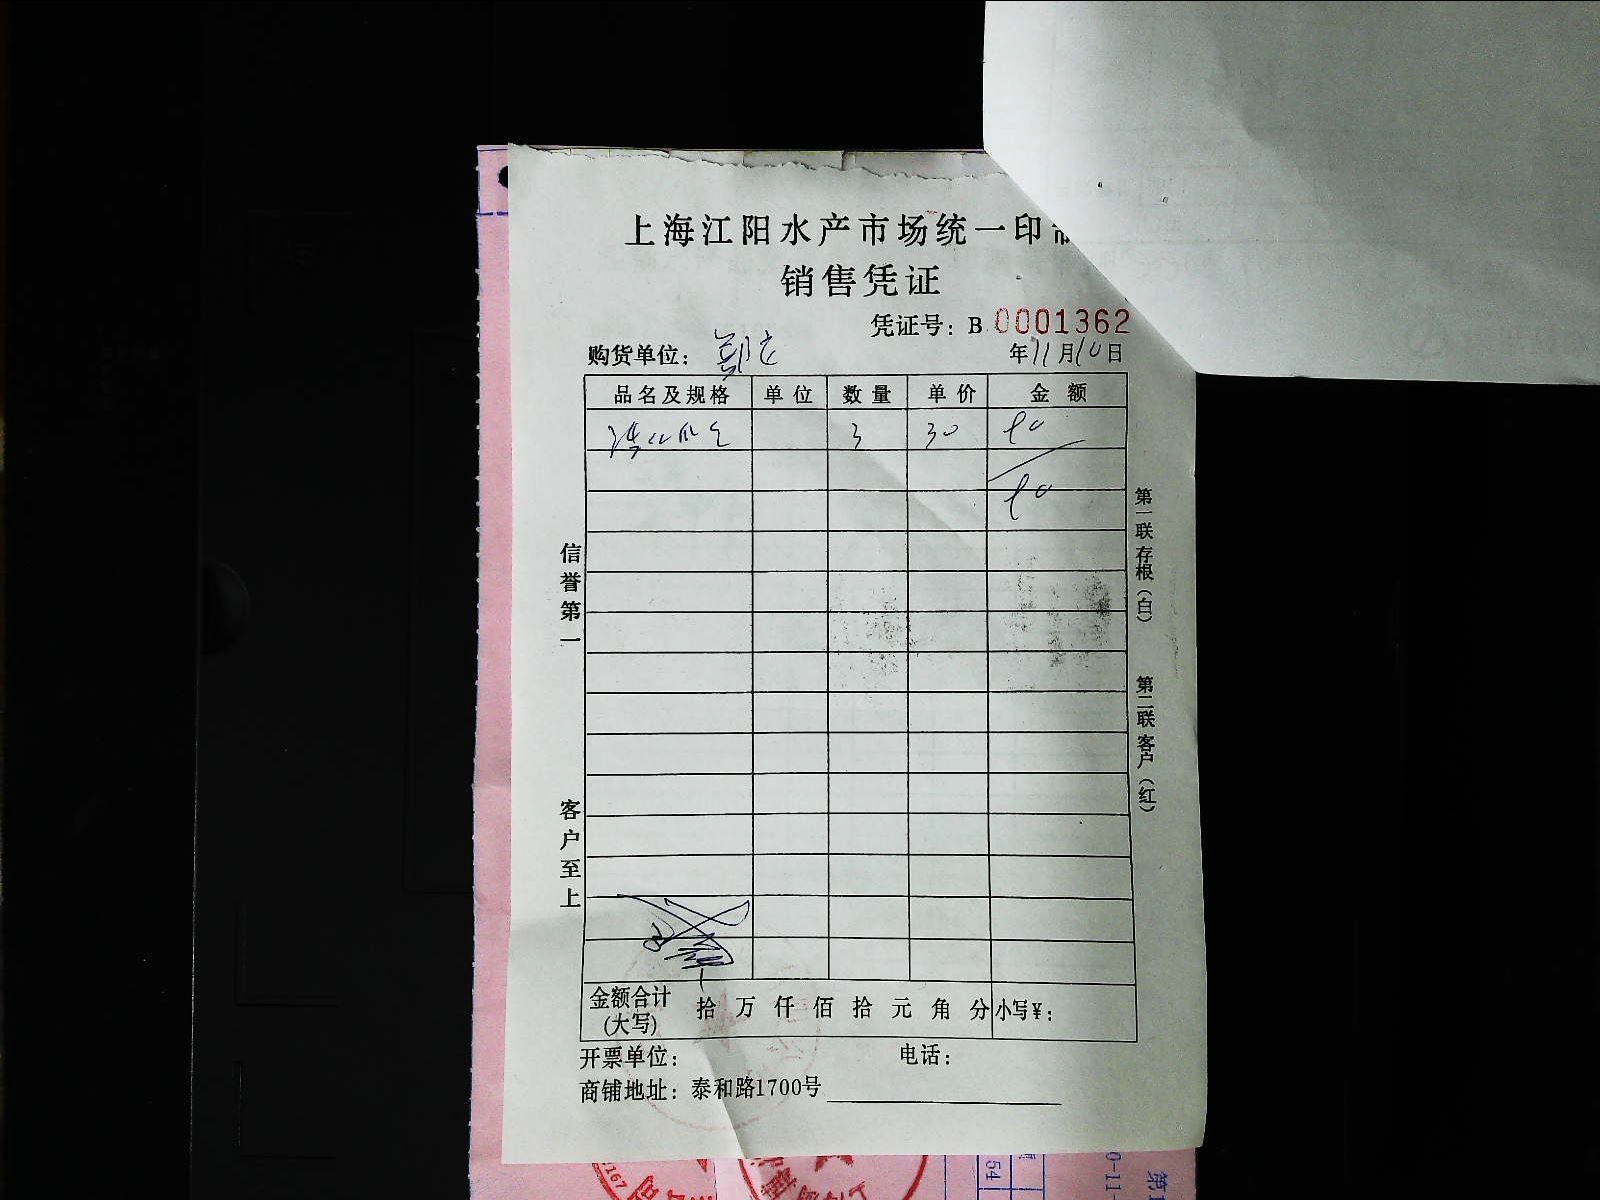 上海江阳水产市场统一印
销售凭证
凭证号：B 0001362
购货单位：
年11月10日
品名及规格 单位 数量 单价 金额
3 30 90
90
信誉第一
客户至上
第一联 存根（白）
第二联 客户（红）
金额合计(大写) 拾 万 仟 佰 拾 元 角 分 小写¥：
开票单位： 电话：
商铺地址：泰和路1700号
54
0-11-
167